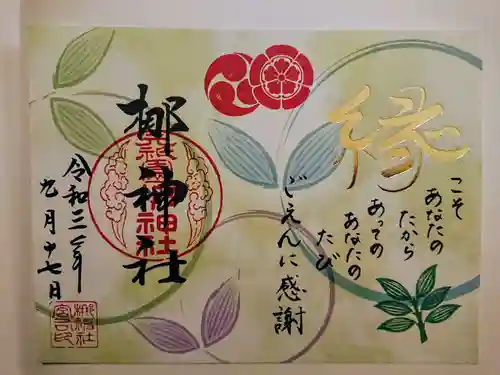 縁
こそ
あなたの
たから
あっての
あなたの
たび
ごえんに感謝
梛神社
令和二年
九月十七日
梛神社
宮司印